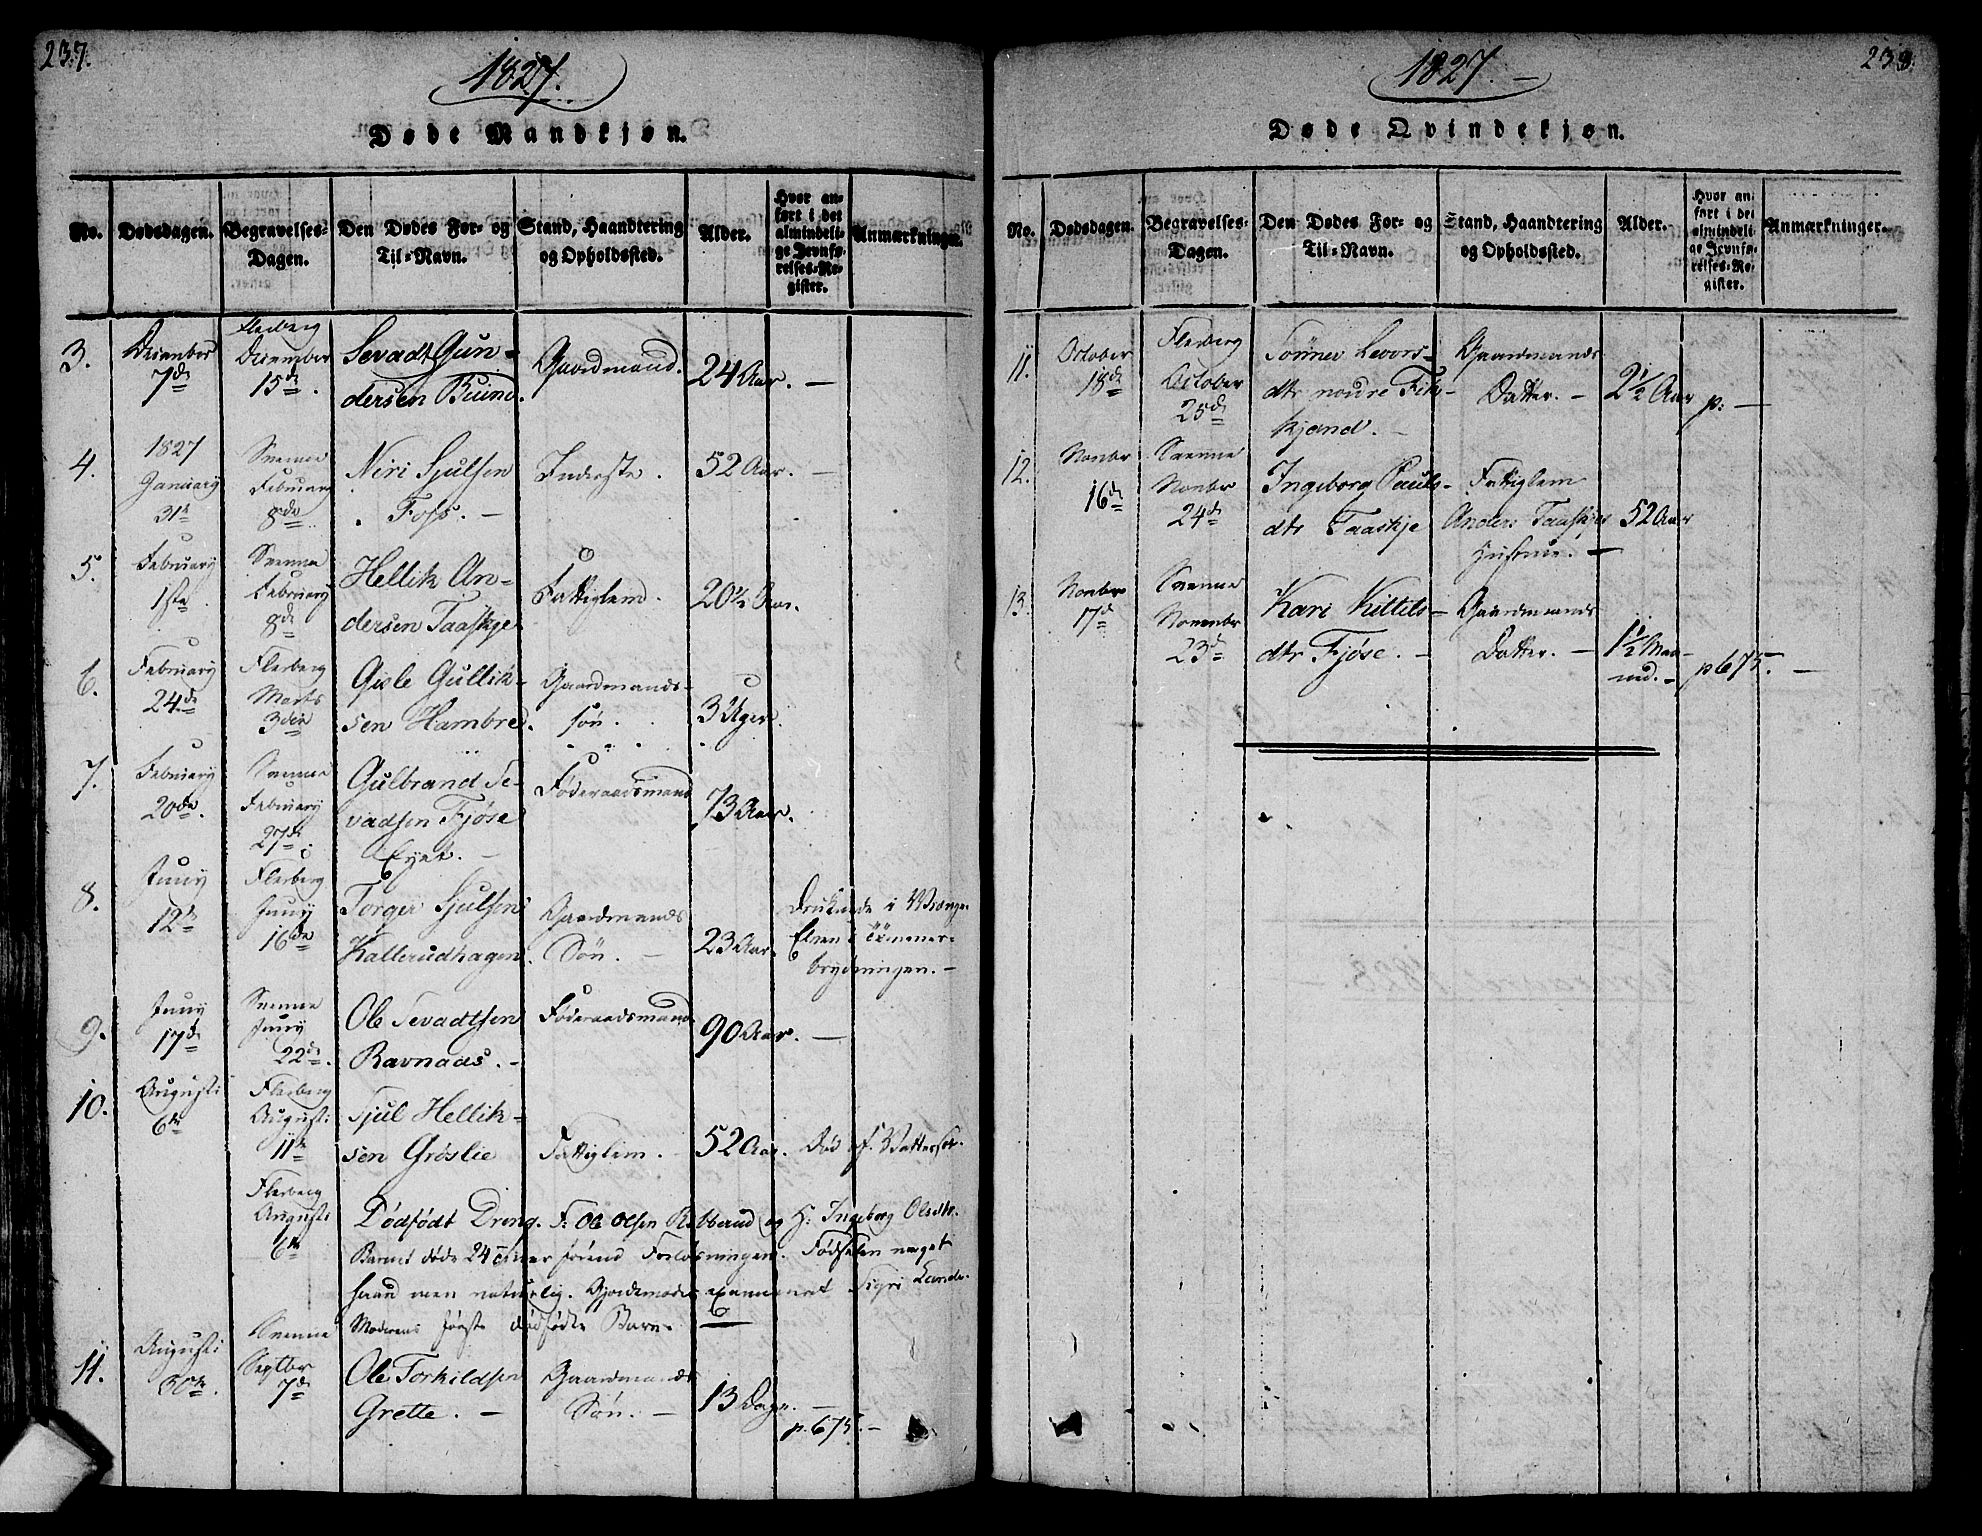 237.
1827.
Døde Mandkjøn.
No.
Dødsdagen.
Begravelses-
Dagen.
Den Dødes For- og
Til-Navn.
Stand, Haandtering
og Opholdssted.
Alder.
Hvor an-
ført i det
almindeli-
ge Jevnfø-
relses-Re-
gister.
Anmærkninger.
3.
December
7de
Flesberg
December
15de.
Sevadt Gun-
dersen Bruno.
Gaardmand.
24 Aar. —
4.
1827
January
31te
Svenne
February
8de
Niri Sjulsen
Foss. —
Inderste.
52 Aar. —
5.
February
1ste
Svenne
February
8de
Hellik An-
dersen Taaskje
Fattiglem.
20½ Aar.
6.
February
24de
Flesberg
Marts
3die
Gisle Gullik-
sen Hambre.
Gaardmands-
søn.
3 Uger.
7.
February
20de.
Svenne
February
27de.
Gulbrand Se-
vadsen Fjøse
Eyet. —
Føderaadsmand
73 Aar.
8.
Juny
12te
Flesberg
Juny
16de
Torger Sjulsen
Kallerudhagen.
Gaardmands
Søn. —
23 Aar.
Druknede i
Elven i Tømmer-
brydningen. —
9.
Juny
17de
Svenne
Juny
22de.
Ole Sevadtsen
Ravnaas. —
Føderaadsmand
90 Aar. —
10.
Augusti
6te
Flesberg
Augusti
11te
Sjul Hellik-
sen Grøslie
Fattiglem.
52 Aar.
Død af Vattersot.
Flesberg
Augusti
6te
Dødfødt Dreng. F: Ole Olsen og H: Ingeborg Olsdtr.
Barnet døde 24 Timer førend Forløsningen. Fødselen noget
haard men naturlig. Gjordemoder examineret Sigri
Moderens første dødfødte Barn.
11.
Augusti
30te.
Svenne
Septbr
7de
Ole Torkildsen
Grette. —
Gaardmands
Søn. —
13 Dage. —
p. 675. —
238.
1827. —
Døde Qvindekjøn.
No.
Dødsdagen.
Begravelses-
Dagen.
Den Dødes For- og
Til-Navn.
Stand, Haandtering
og Opholdssted.
Alder.
Hvor an-
ført i det
almindeli-
ge Jevnfø-
relses-Re-
gister.
Anmærkninger.
11.
October
18de
Flesberg
October
25de
Sønnev Levors-
dtr nordre Fik-
kjand. —
Gaardmands
Datter. —
2½ Aar
p: —
12.
Novbr
16de
Svenne
Novbr
24de
Ingeborg Pauls-
dtr Taaskje
Fattiglem
Anders Taaskjes
Hustrue. —
52 Aar
13.
Novbr
17de
Svenne
Novembr
23de
Kari Kittils-
dtr Fjøse. —
Gaardmands
Datter. —
1½ Maa-
ned. —
p 675. —